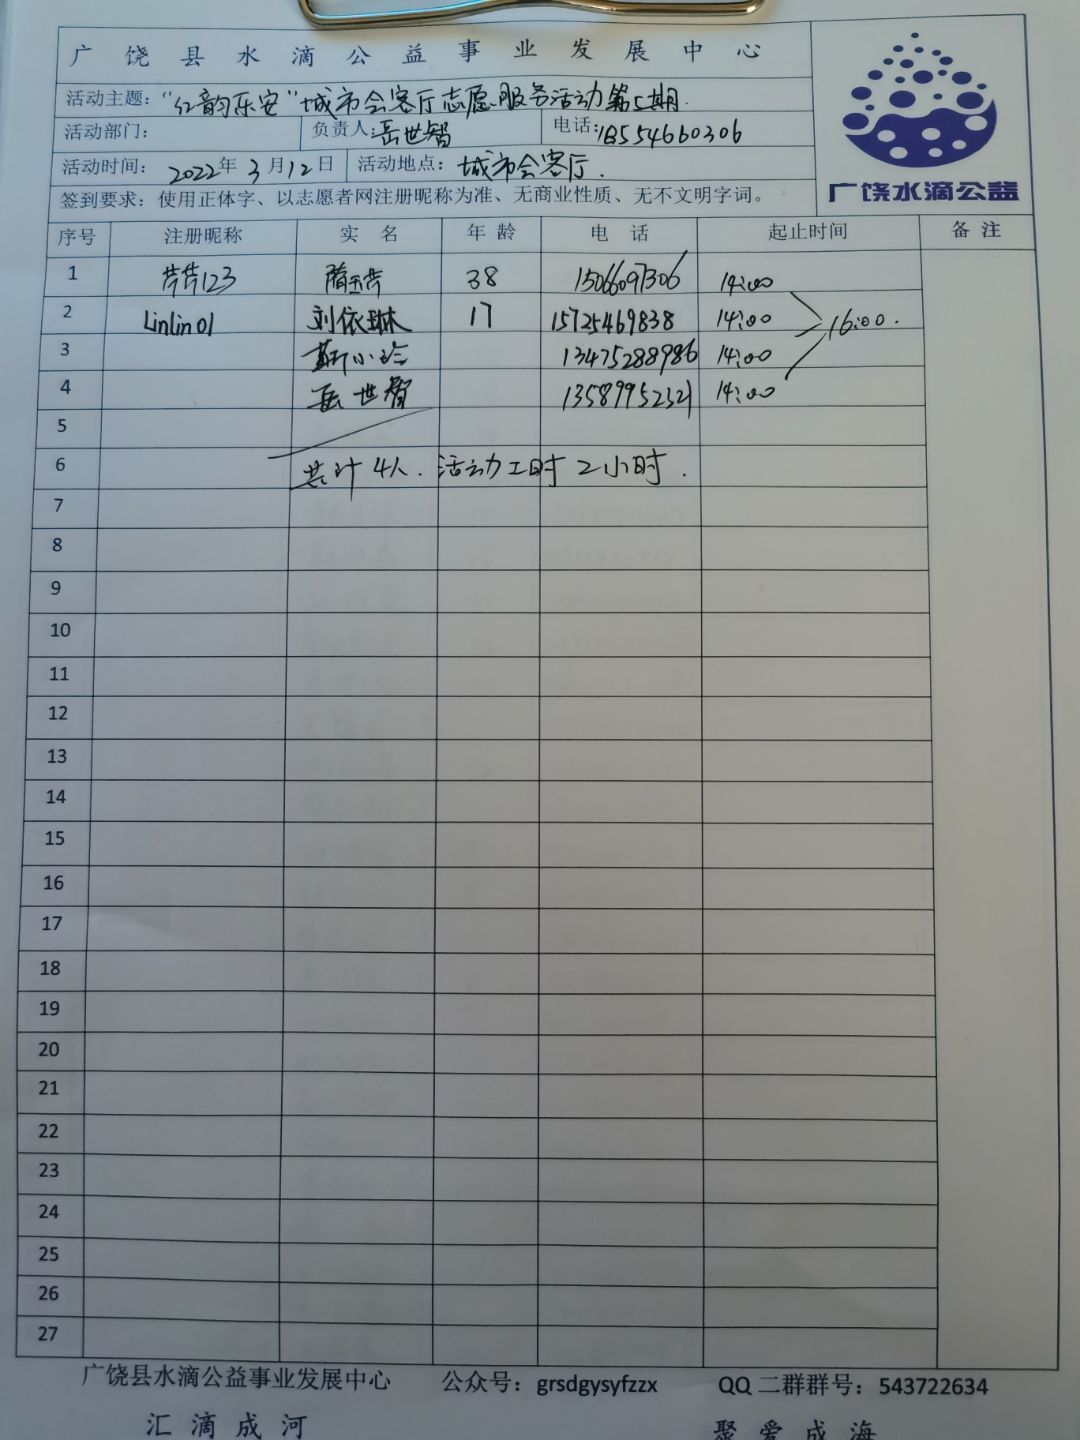 广饶县水滴公益事业发展中心
活动主题：“红韵乐安”城市会客厅志愿服务活动第5期.
活动部门： 负责人：岳世智 电话：18554660306
活动时间：2022年3月12日 活动地点：城市会客厅.
签到要求：使用正体字、以志愿者网注册昵称为准、无商业性质、无不文明字词。
广饶水滴公益
序号 注册昵称 实名 年龄 电话 起止时间 备注
1 芹芹123 隋玉芹 38 15066097306 14:00
2 Linlin01 刘依琳 17 15725469838 14:00 16:00.
3 靳小玲 13475288986 14:00
4 岳世智 13589952321 14:00
5
6 共计4人.活动工时2小时.
7
8
9
10
11
12
13
14
15
16
17
18
19
20
21
22
23
24
25
26
27
广饶县水滴公益事业发展中心 公众号：grsdgysyfzzx QQ二群群号：543722634
汇滴成河 聚爱成海